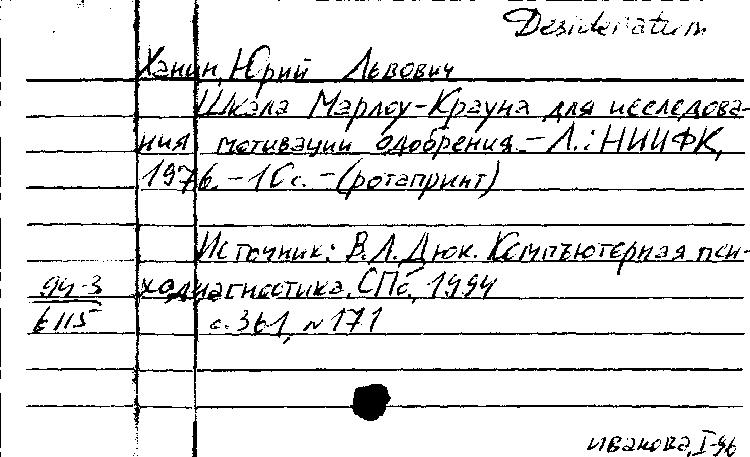 Desideratum
Ханин, Юрий Львович
Шкала Марлоу-Крауна для исследова-
ния мотивации одобрения. - Л.: НИИФК,
1976. - 10 с. - (ротапринт)
Источник: В.А. Дюк. Компьютерная пси-
94-3 ходиагностика. СПб, 1994
6115 с. 361, N 171
Иванова, I-96